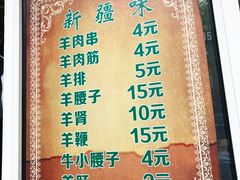 新疆味
羊肉串 4元
羊肉筋 4元
羊排 5元
羊腰子 15元
羊肾 10元
羊鞭 15元
牛小腰子 4元